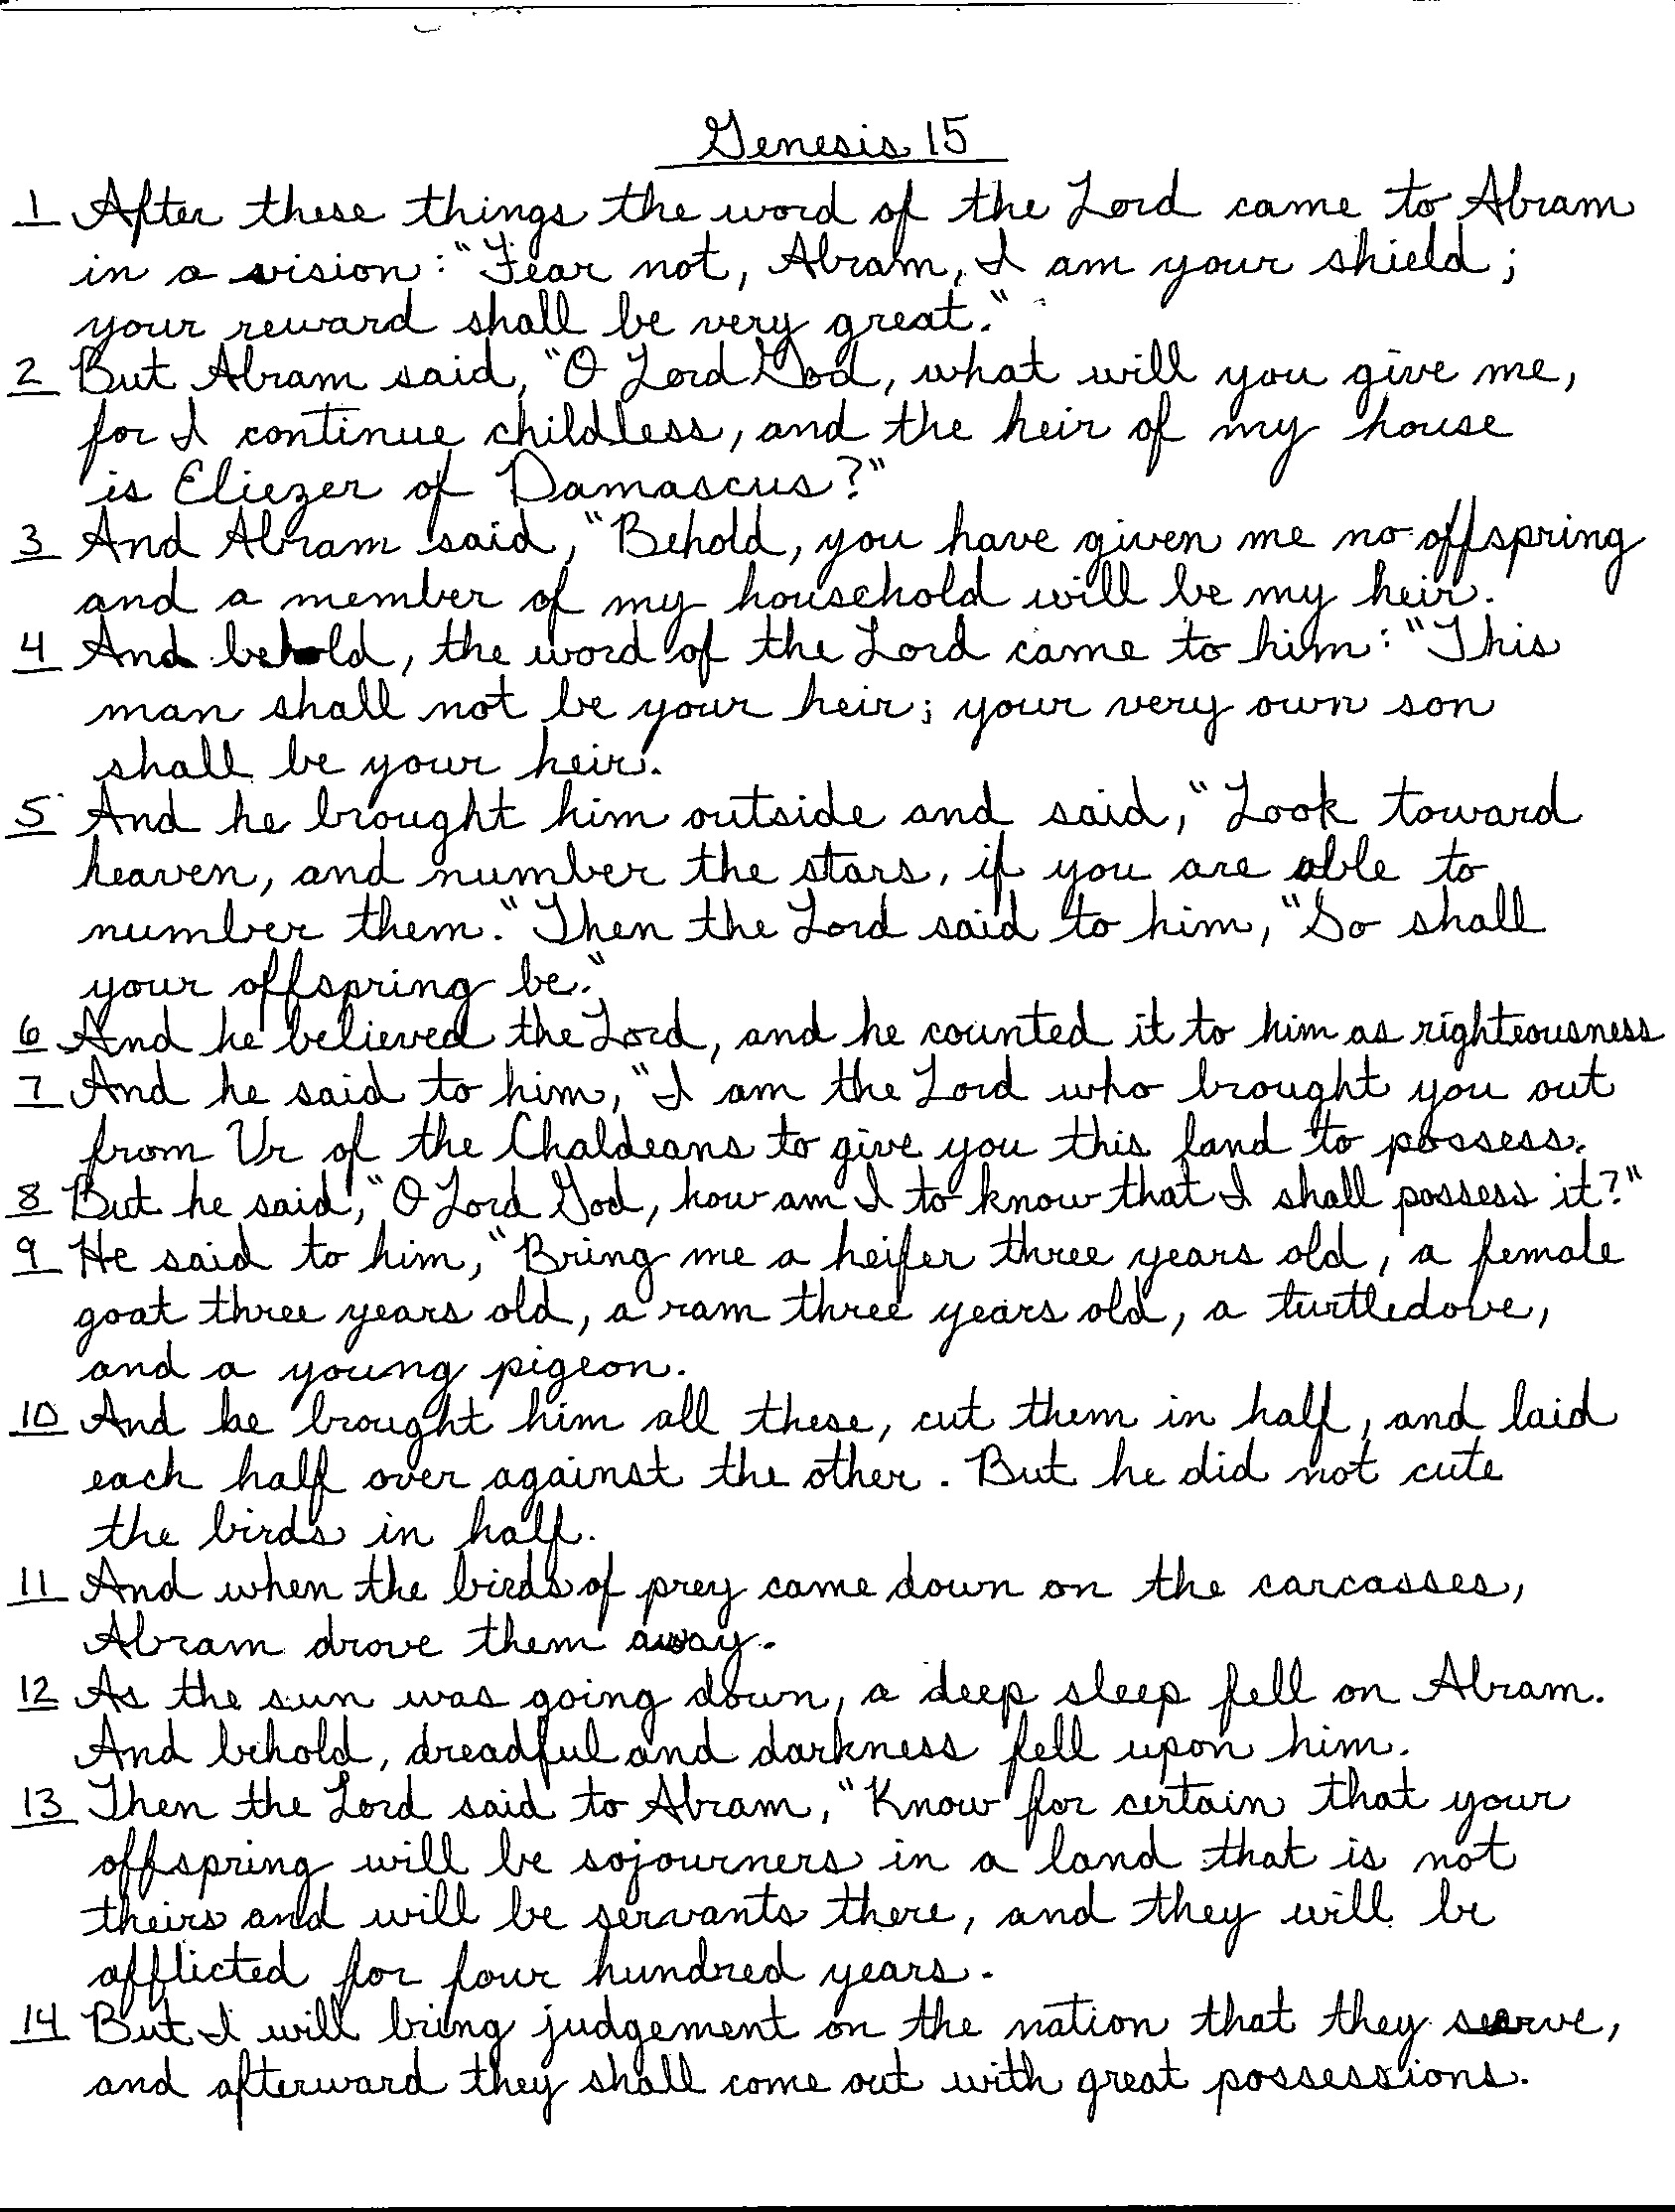 Genesis 15
1 After these things the word of the Lord came to Abram
in a vision: "Fear not, Abram, I am your shield;
your reward shall be very great."
2 But Abram said, "O Lord God, what will you give me,
for I continue childless, and the heir of my house
is Eliezer of Damascus?"
3 And Abram said, "Behold, you have given me no offspring
and a member of my household will be my heir.
4 And behold, the word of the Lord came to him: "This
man shall not be your heir; your very own son
shall be your heir.
5 And he brought him outside and said, "Look toward
heaven, and number the stars, if you are able to
number them." Then the Lord said to him, "So shall
your offspring be."
6 And he believed the Lord, and he counted it to him as righteousness
7 And he said to him, "I am the Lord who brought you out
from Ur of the Chaldeans to give you this land to possess.
8 But he said, "O Lord God, how am I to know that I shall possess it?"
9 He said to him, "Bring me a heifer three years old, a female
goat three years old, a ram three years old, a turtledove,
and a young pigeon.
10 And he brought him all these, cut them in half, and laid
each half over against the other. But he did not cute
the birds in half.
11 And when the birds of prey came down on the carcasses,
Abram drove them away.
12 As the sun was going down, a deep sleep fell on Abram.
And behold, dreadful and darkness fell upon him.
13 Then the Lord said to Abram, "Know for certain that your
offspring will be sojourners in a land that is not
theirs and will be servants there, and they will be
afflicted for four hundred years.
14 But I will bring judgement on the nation that they serve,
and afterward they shall come out with great possessions.